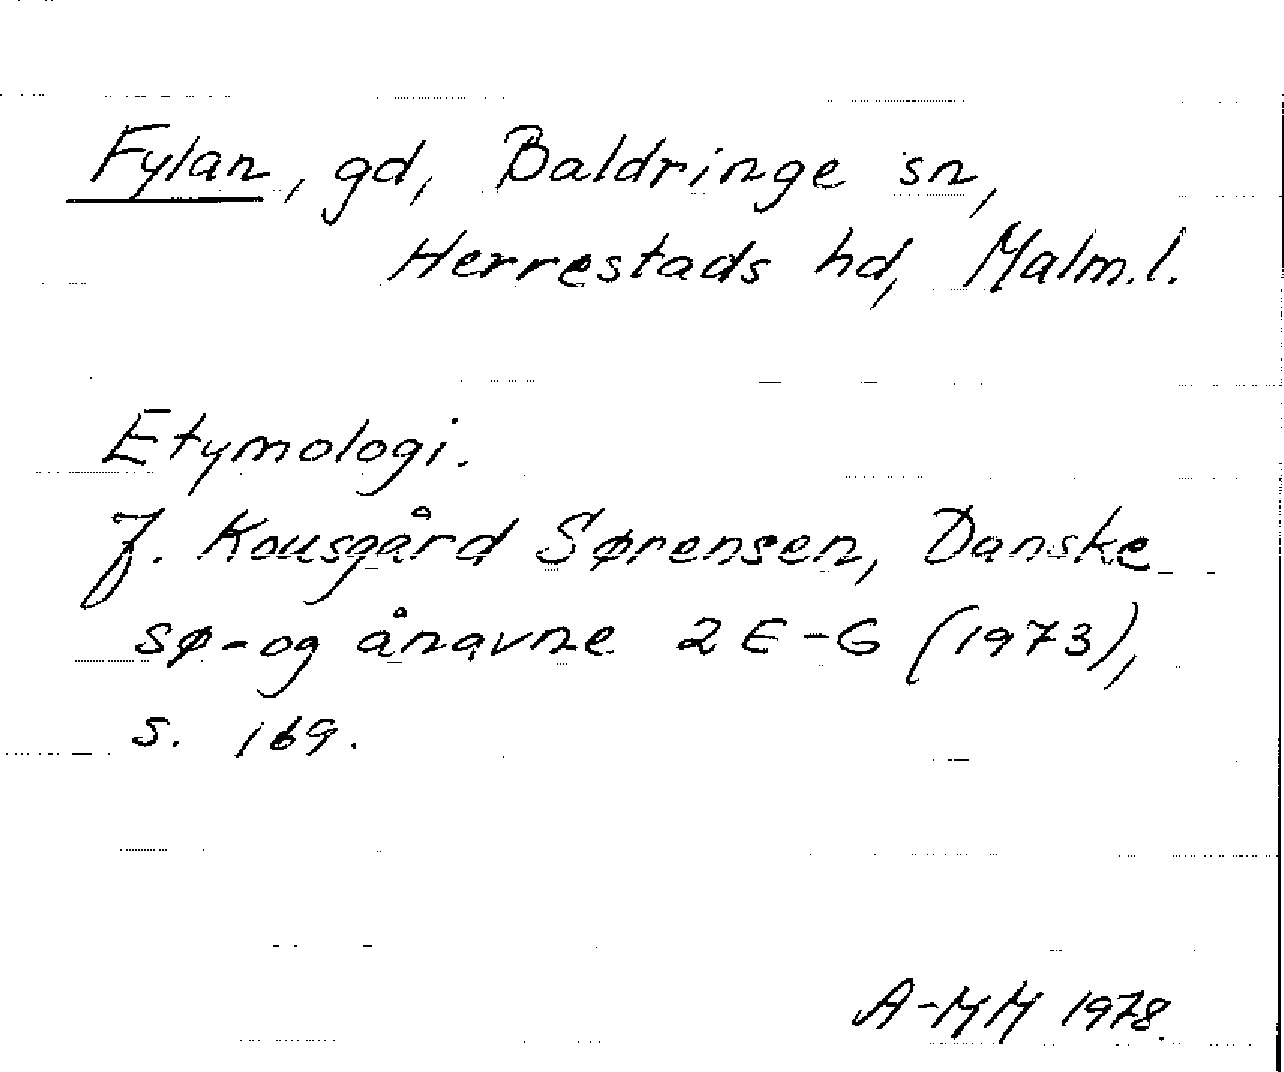 Fylan, gd, Baldringe sn,
Herrestads hd, Malm.l.
Etymologi.
J. Kousgård Sørensen, Danske
sø- og ånavne 2 E-G (1973),
s. 169.
A-MM 1978.